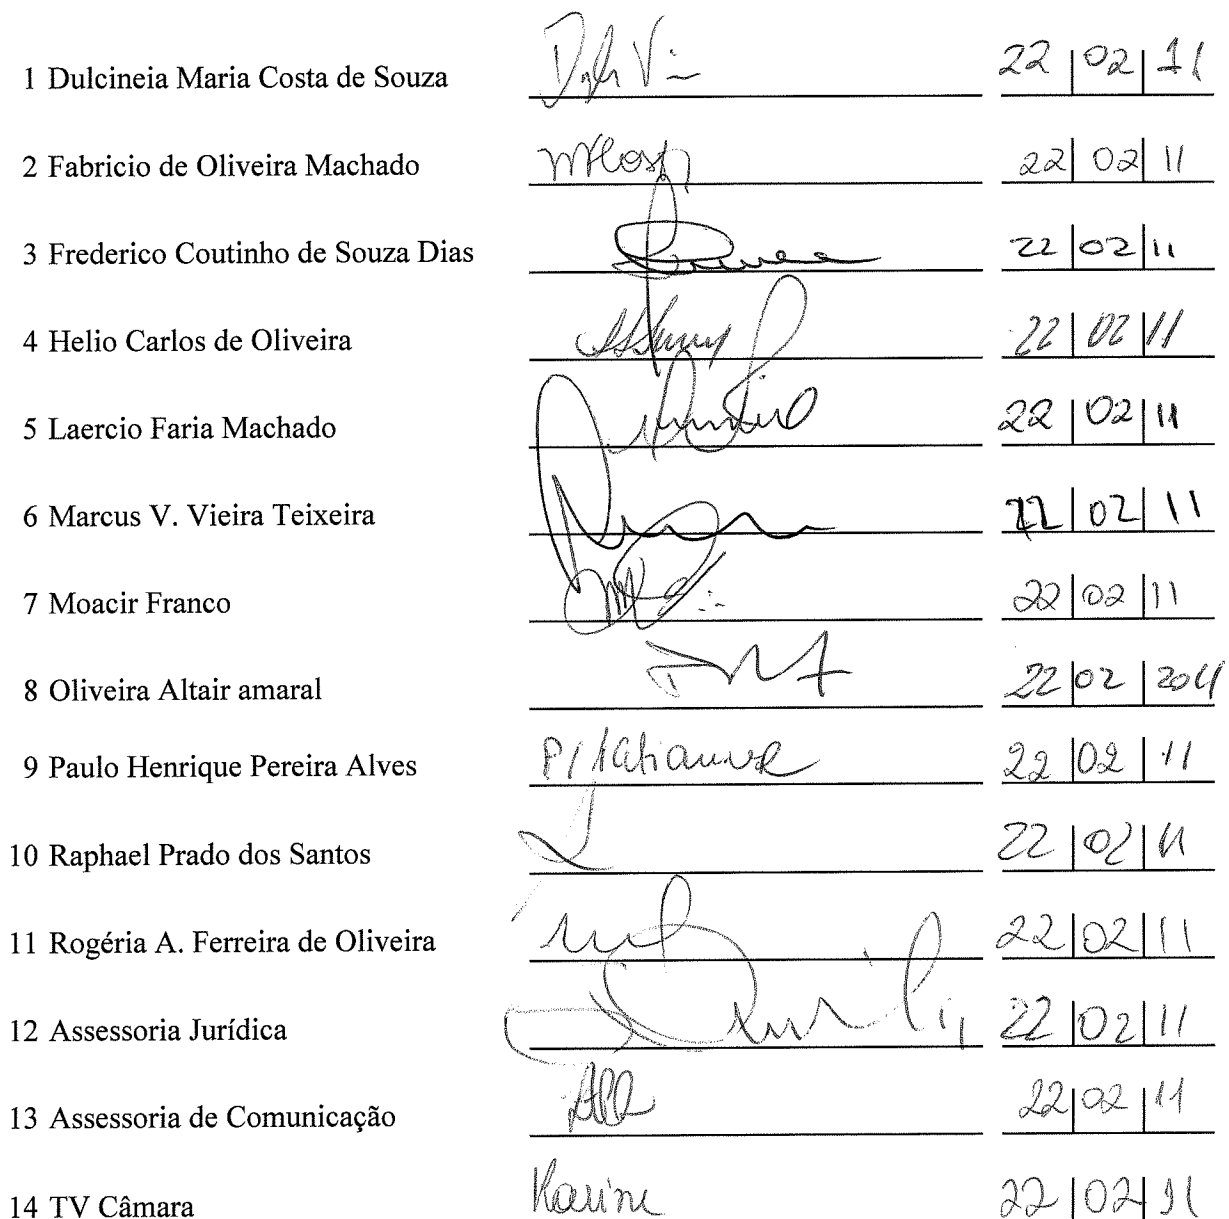 1 Dulcineia Maria Costa de Souza 22|02|11
2 Fabricio de Oliveira Machado 22|02|11
3 Frederico Coutinho de Souza Dias 22|02|11
4 Helio Carlos de Oliveira 22|02|11
5 Laercio Faria Machado 22|02|11
6 Marcus V. Vieira Teixeira 22|02|11
7 Moacir Franco 22|02|11
8 Oliveira Altair amaral 22|02|2011
9 Paulo Henrique Pereira Alves P/ 22|02|11
10 Raphael Prado dos Santos 22|02|11
11 Rogéria A. Ferreira de Oliveira 22|02|11
12 Assessoria Jurídica 22|02|11
13 Assessoria de Comunicação 22|02|11
14 TV Câmara Karine 22|02|11